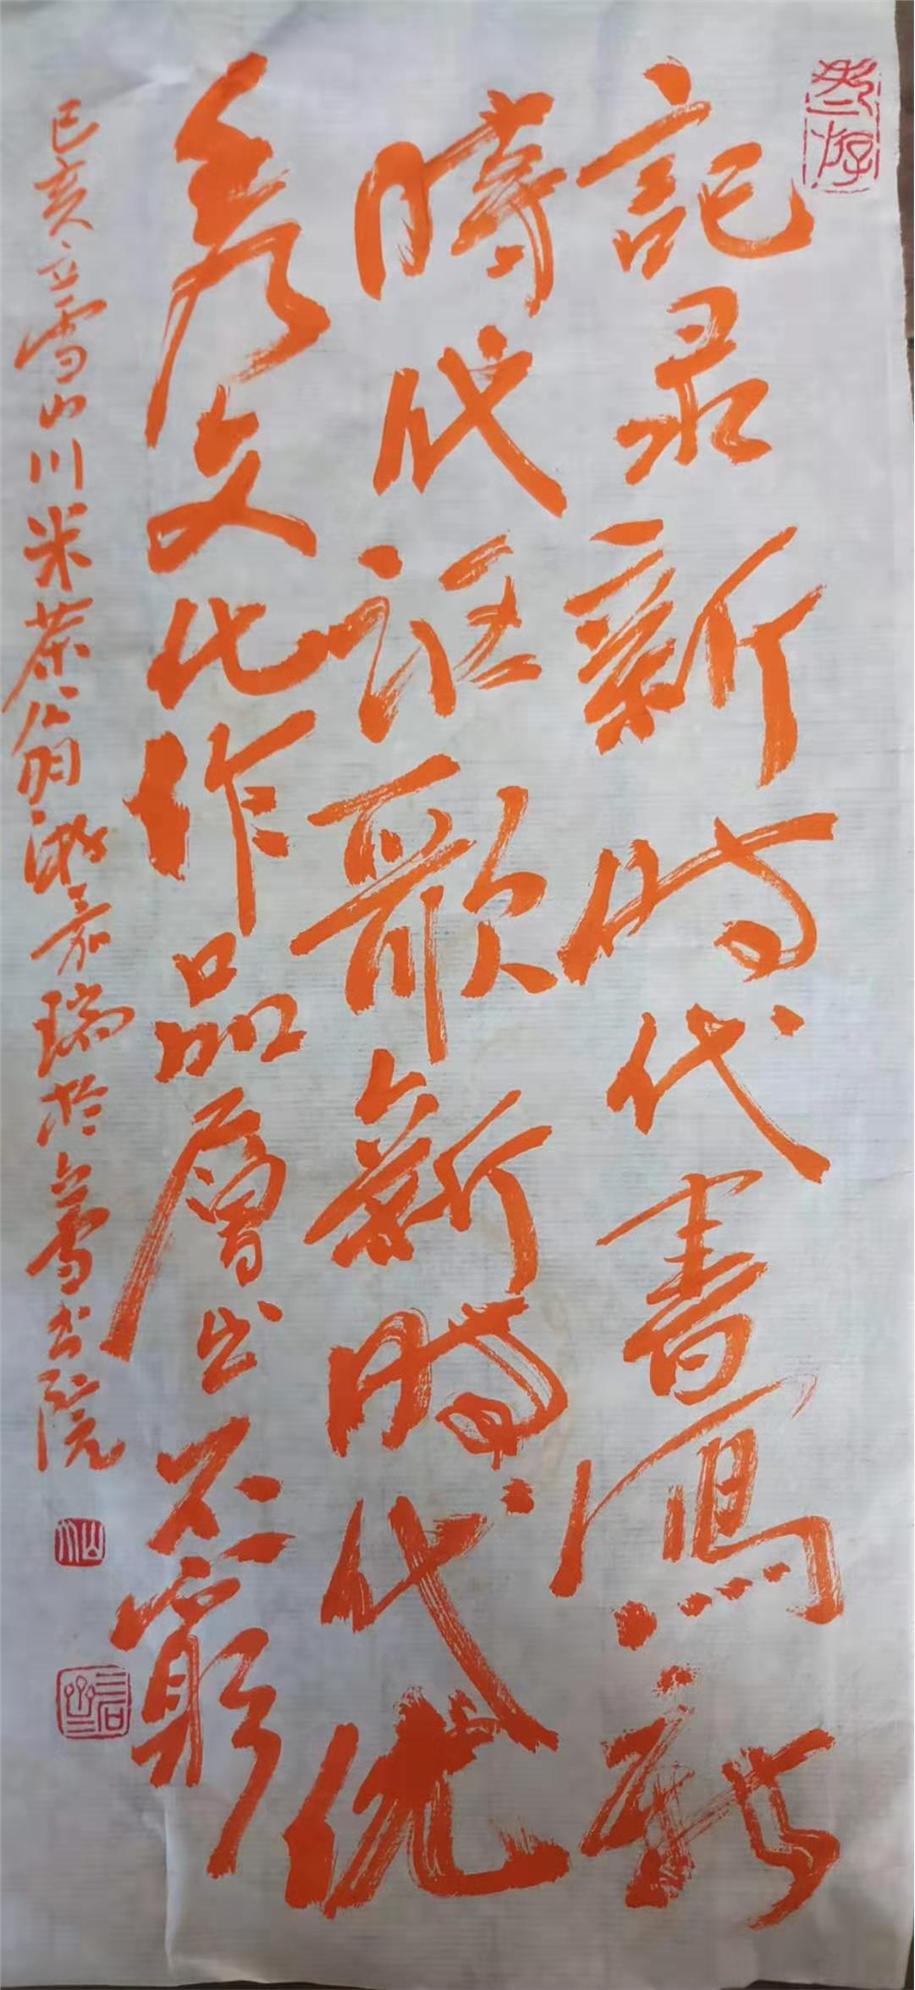 記录新時代書寫新
時代讴歌新時代优
秀文化作品層出不窮
己亥立雪山川米茶翁游嘉瑞於立雪书院
山川